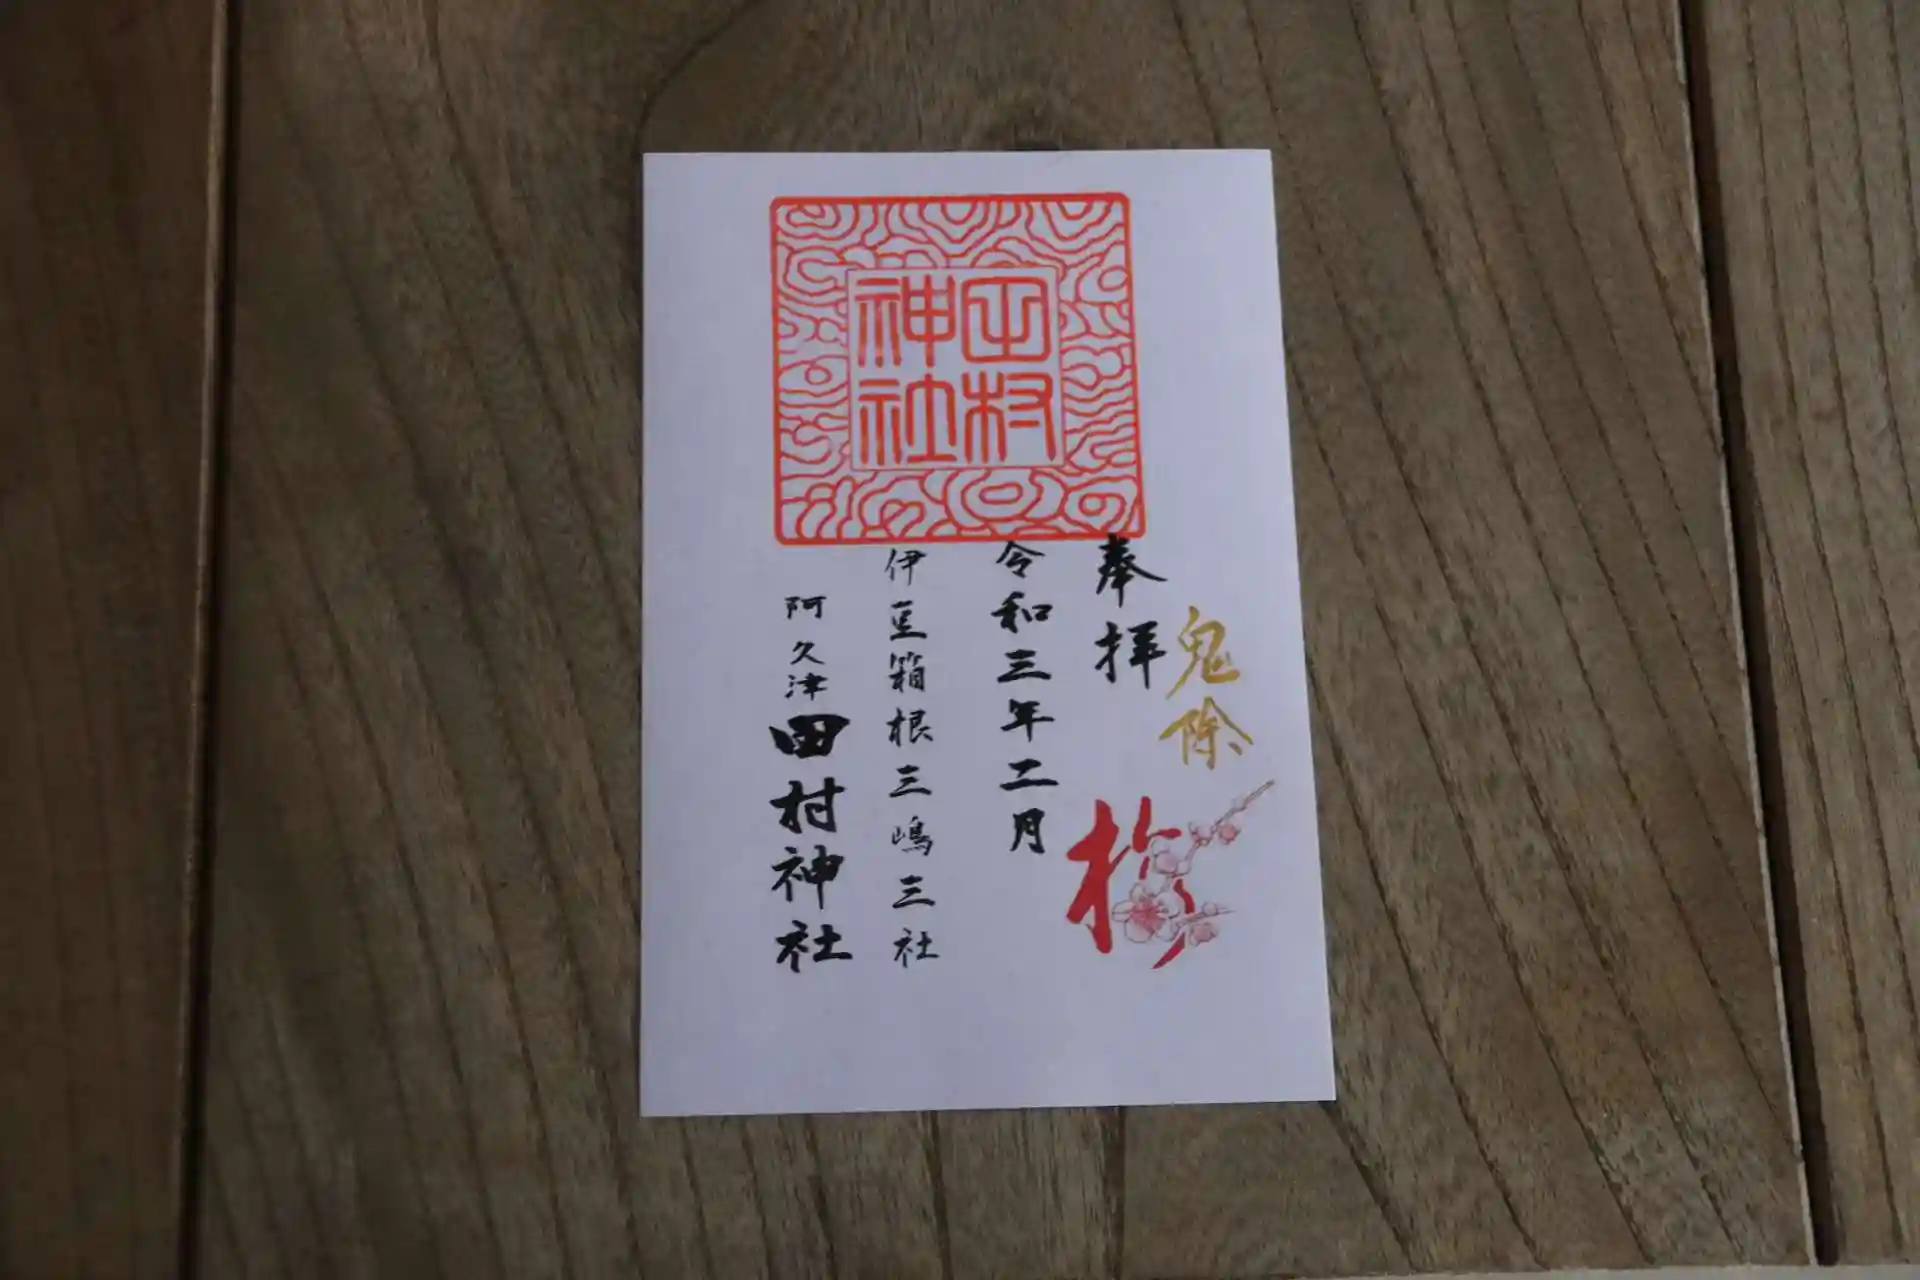 田村
神社
鬼除
奉拝
梅
令和三年二月
伊豆箱根三嶋三社
阿久津田村神社